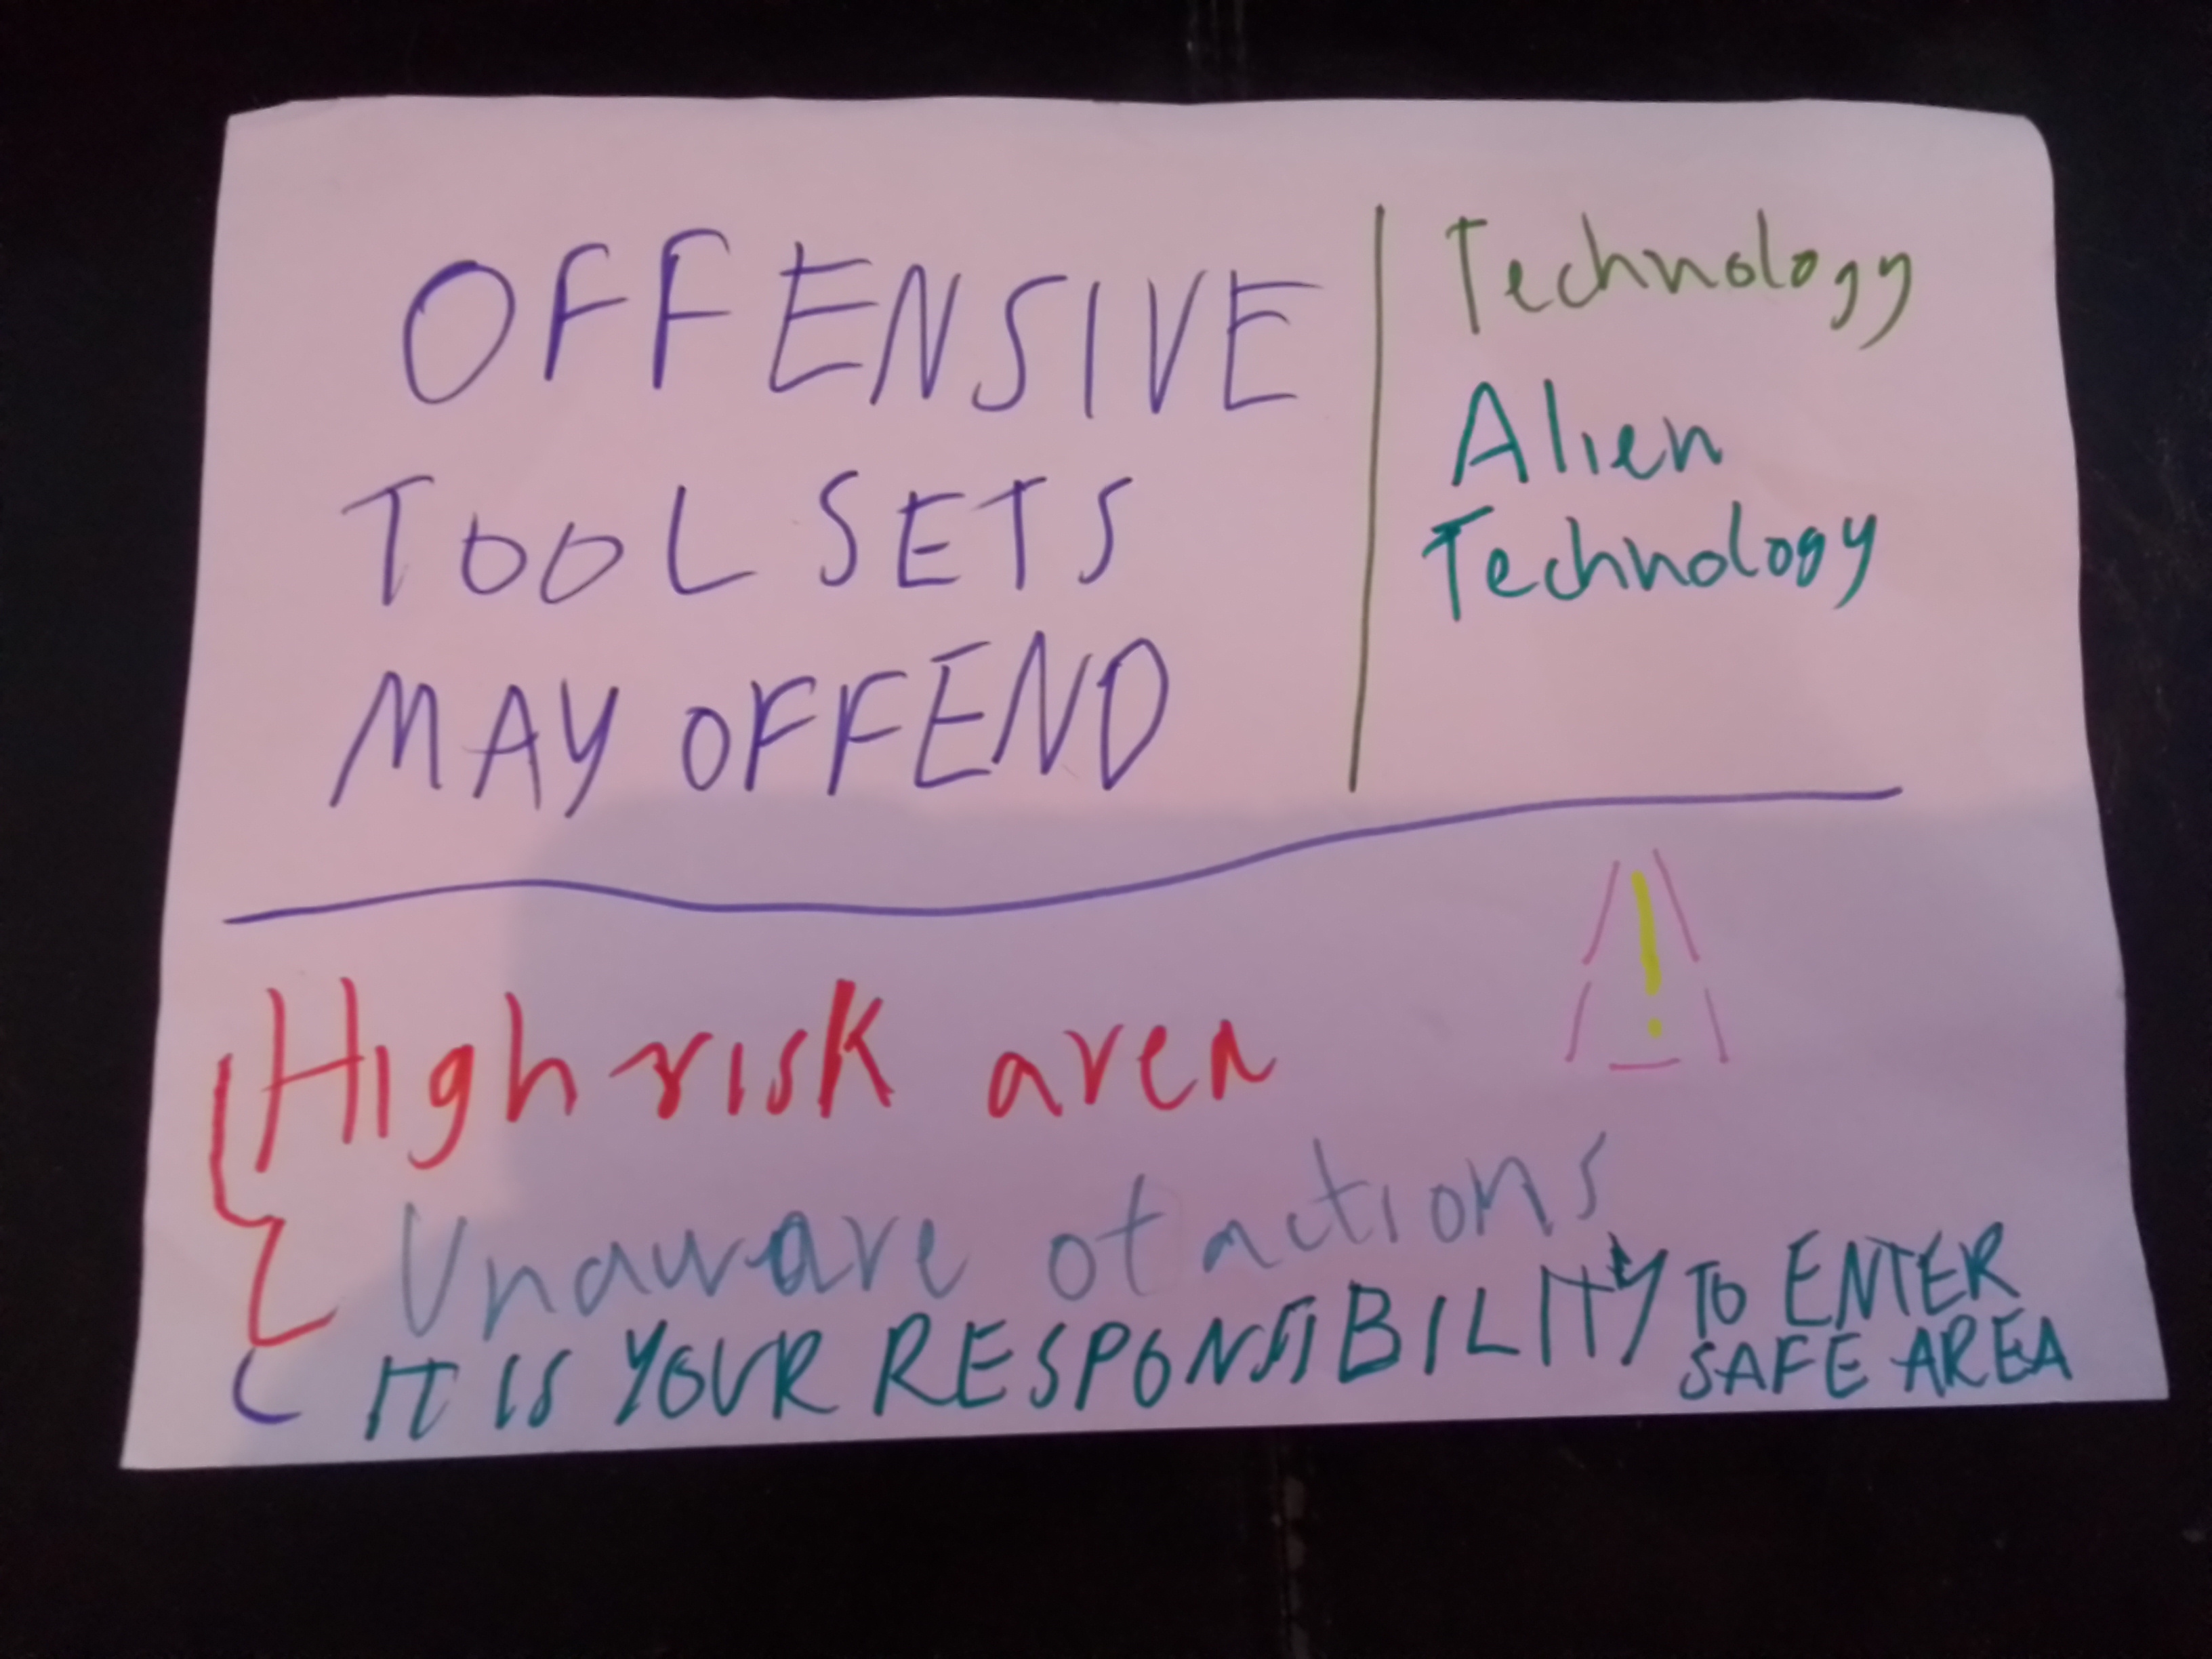 OFFENSIVE
TOOL SETS
MAY OFFEND
Technology
Alien
Technology
!
High risk area
Unaware of actions
IT IS YOUR RESPONSIBILITY TO ENTER
SAFE AREA